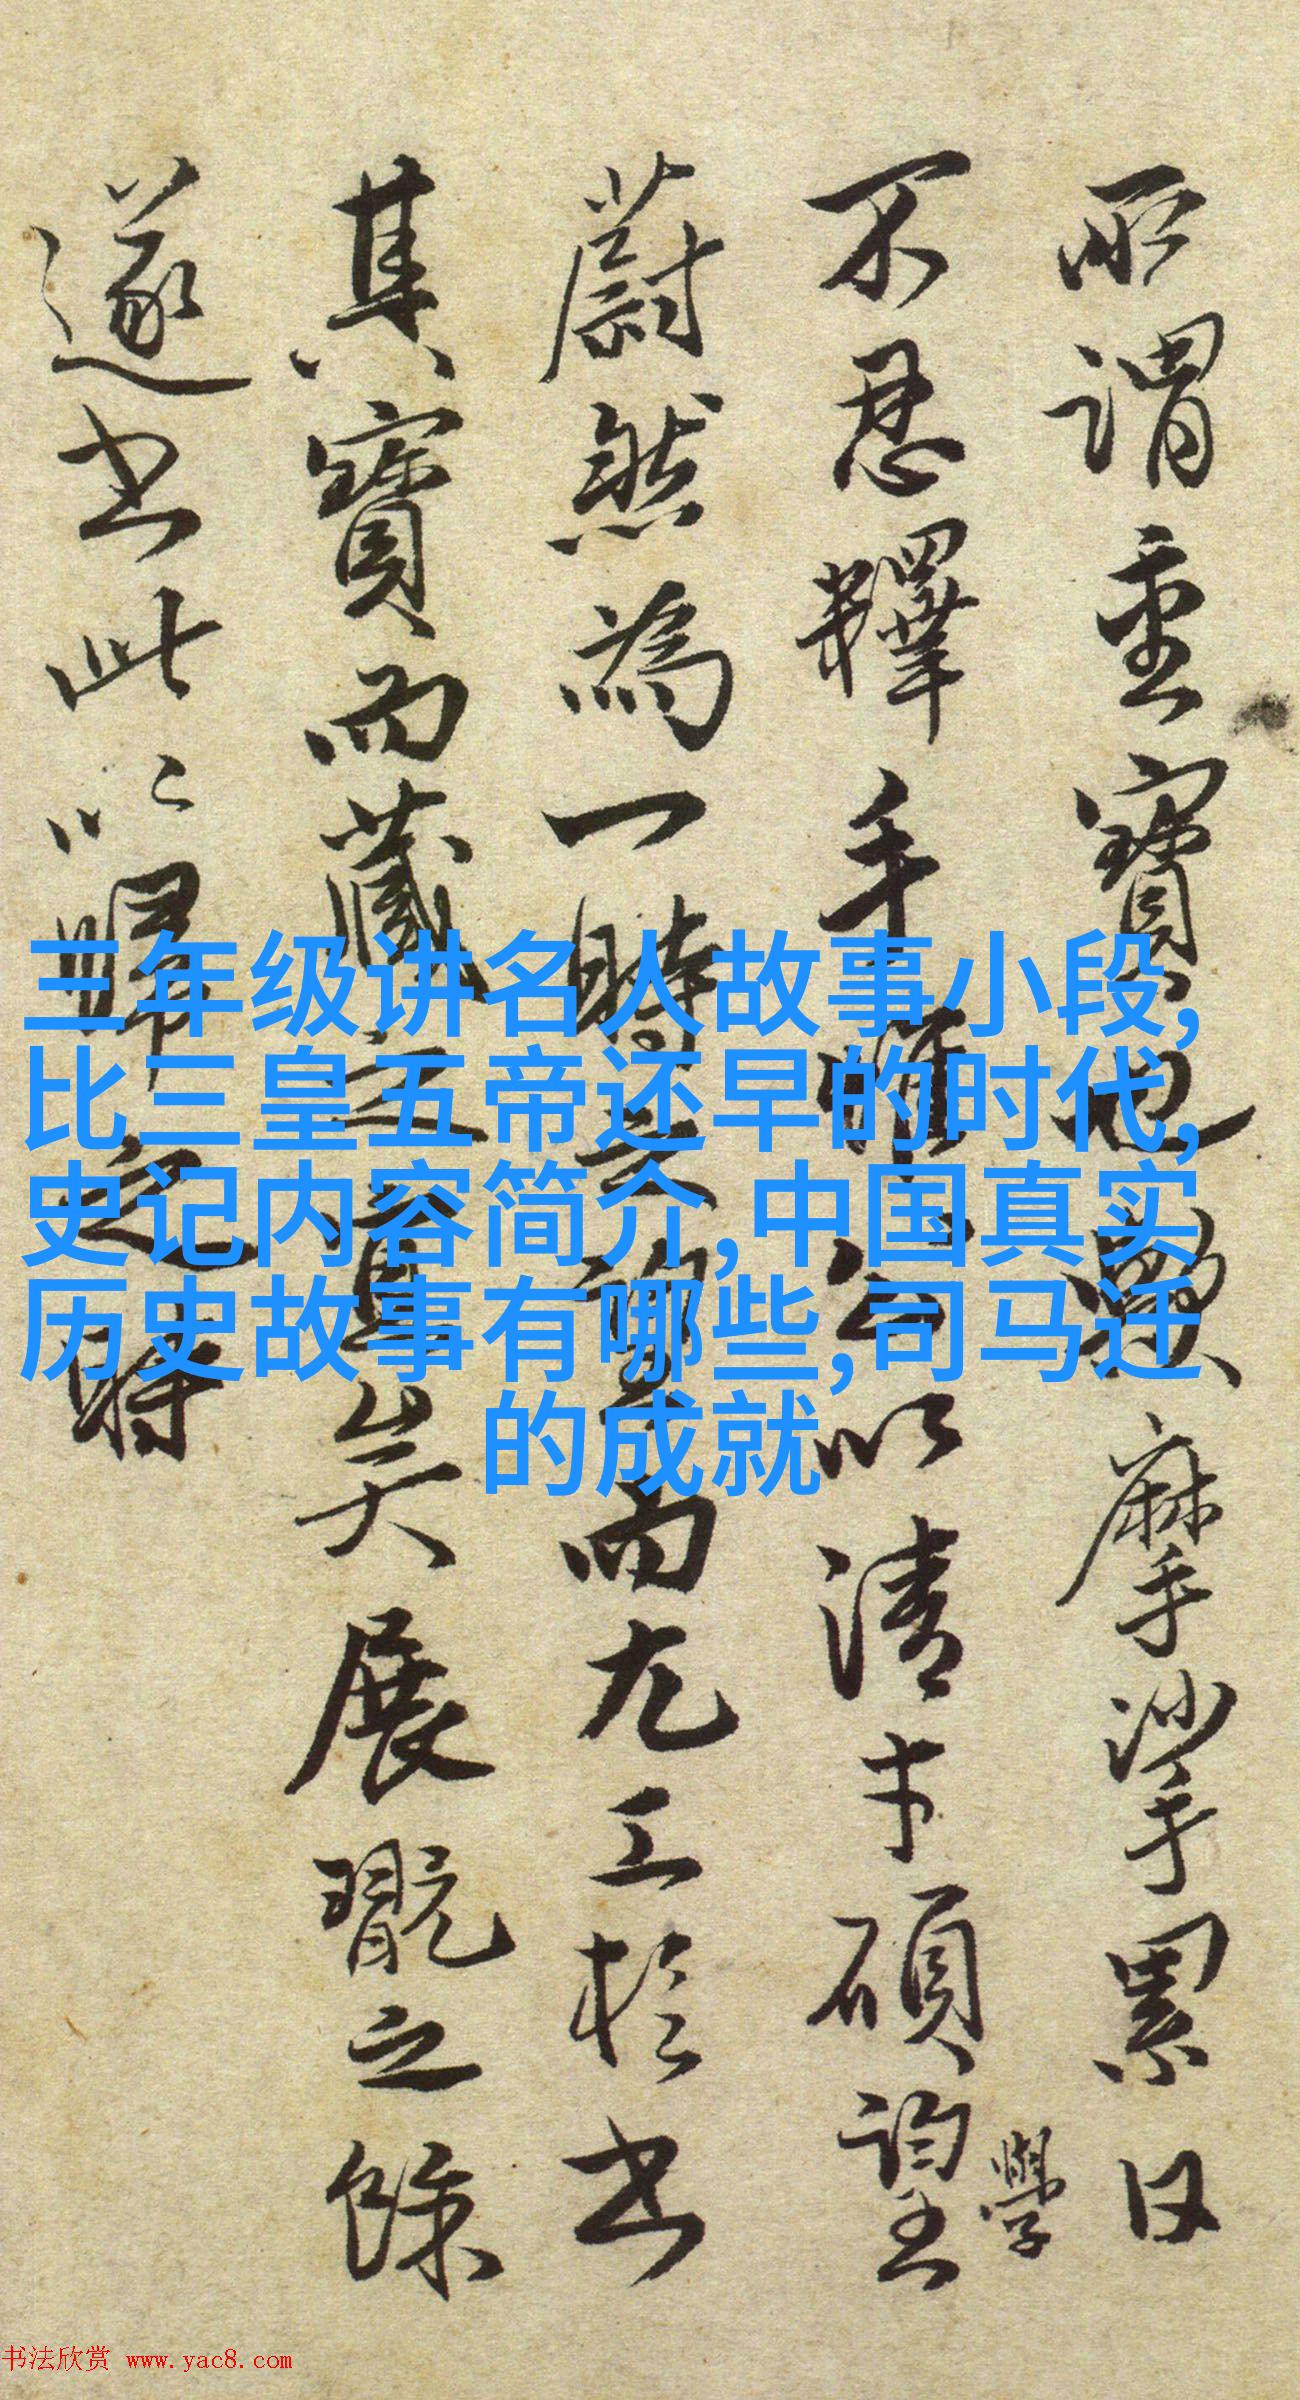 所謂重寶也躐摩挲累日
不忍釋手惟公以清才碩學望
蔚然為一時之望而尤工於書
其寶而藏之宜矣展翫之餘
遂書此以歸之時
三年级讲名人故事小段,
比三皇五帝还早的时代,
史记内容简介,中国真实
历史故事有哪些,司马迁
的成就
书法欣赏 www.yac8.com